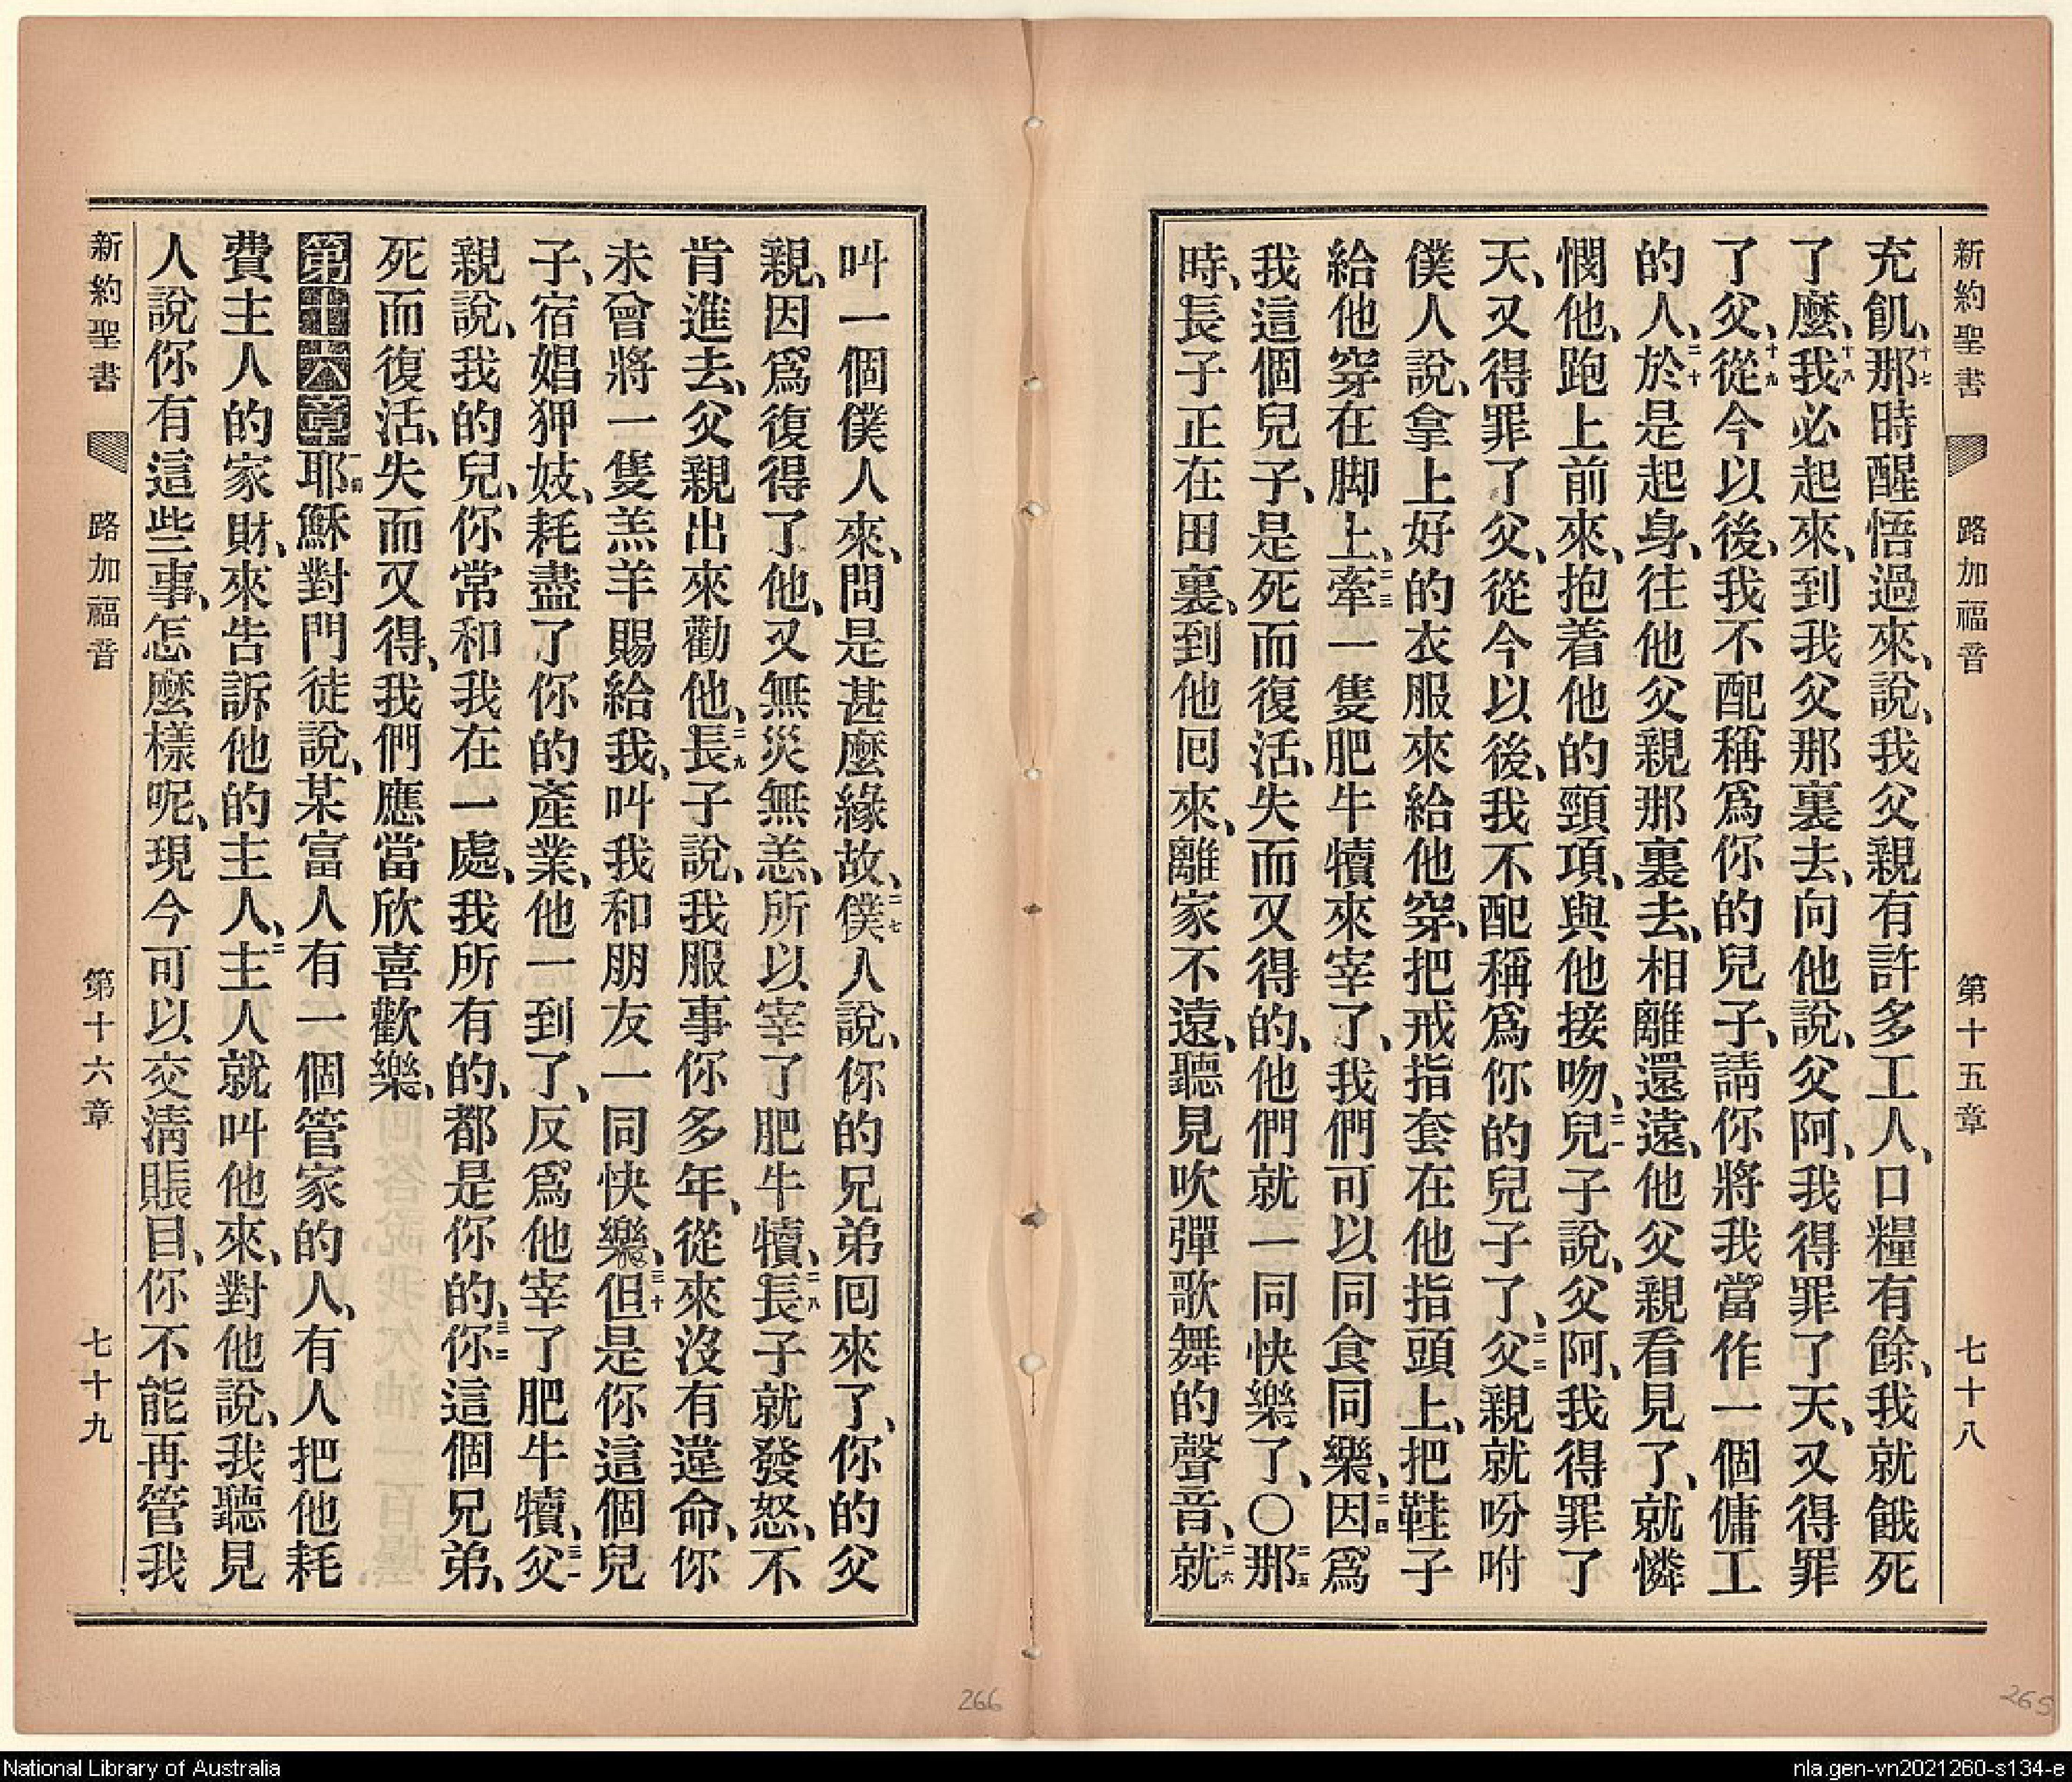 新約聖書 路加福音 第十五章 七十八
充飢、十七那時醒悟過來、說、我父親有許多工人、口糧有餘、我就餓死
了麼、十八我必起來、到我父那裏去、向他說、父阿、我得罪了天、又得罪
了父、十九從今以後、我不配稱爲你的兒子、請你將我當作一個傭工
的人、二十於是起身、往他父親那裏去、相離還遠、他父親看見了、就憐
憫他、跑上前來、抱着他的頸項、與他接吻、二一兒子說、父阿、我得罪了
天、又得罪了父、從今以後、我不配稱爲你的兒子了、二二父親就吩咐
僕人說、拿上好的衣服來給他穿、把戒指套在他指頭上、把鞋子
給他穿在脚上、二三牽一隻肥牛犢來宰了、我們可以同食同樂、二四因爲
我這個兒子、是死而復活、失而又得的、他們就一同快樂了、〇二五那
時、長子正在田裏、到他囘來、離家不遠、聽見吹彈歌舞的聲音、二六就
叫一個僕人來、問是甚麼緣故、二七僕人說、你的兄弟囘來了、你的父
親、因爲復得了他、又無災無恙、所以宰了肥牛犢、二八長子就發怒、不
肯進去、父親出來勸他、二九長子說、我服事你多年、從來沒有違命、你
未曾將一隻羔羊賜給我、叫我和朋友一同快樂、三十但是你這個兒
子、宿娼狎妓、耗盡了你的產業、他一到了、反爲他宰了肥牛犢、三一父
親說、我的兒、你常和我在一處、我所有的、都是你的、三二你這個兄弟、
死而復活、失而又得、我們應當欣喜歡樂、
第十六章 一節耶穌對門徒說、某富人有一個管家的人、有人把他耗
費主人的家財、來告訴他的主人、二主人就叫他來、對他說、我聽見
人說你有這些事、怎麼樣呢、現今可以交淸賬目、你不能再管我
新約聖書 路加福音 第十六章 七十九
266
265
National Library of Australia
nla.gen-vn2021260-s134-e